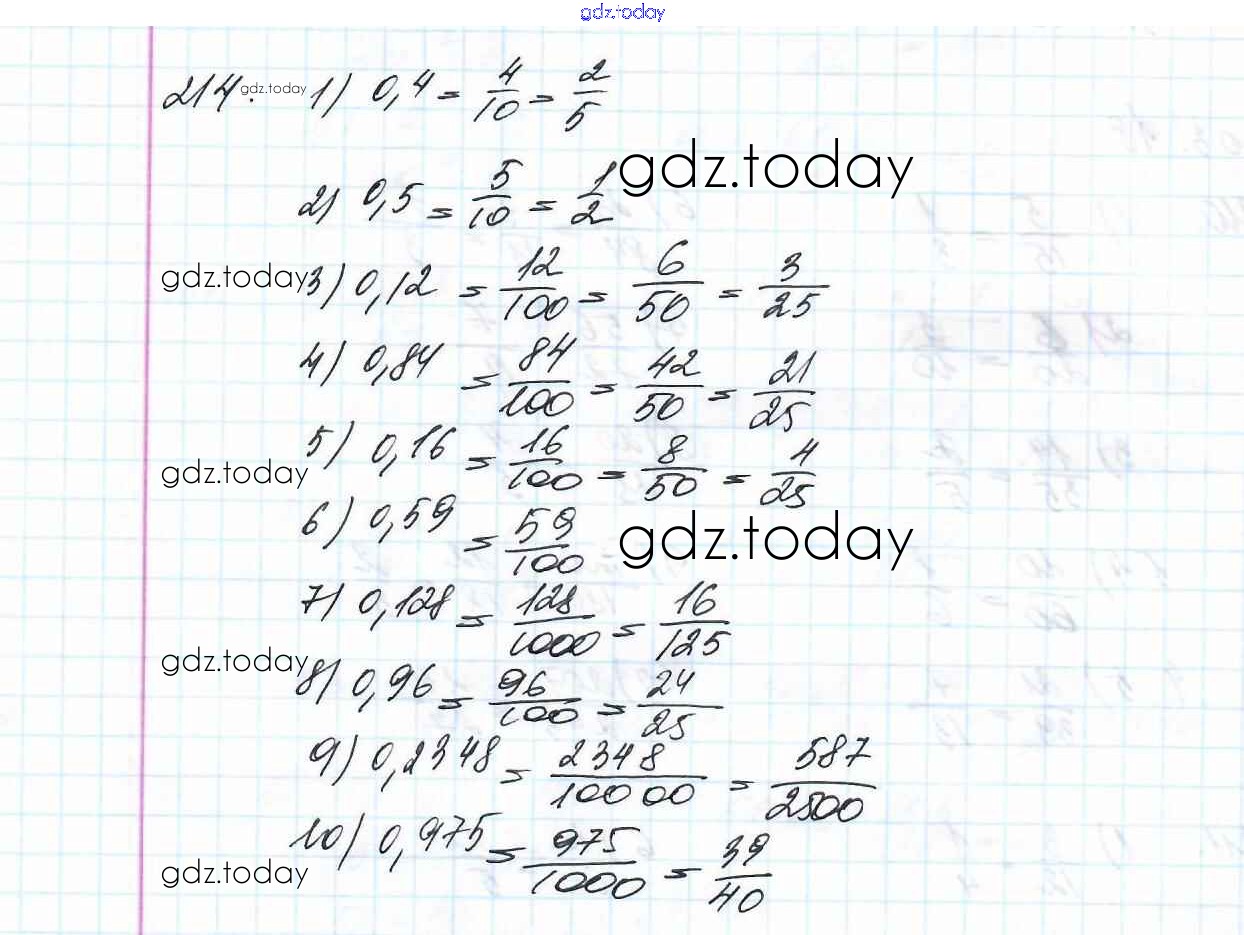 gdz.today
214. gdz.today 1) 0,4 = 4/10 = 2/5
gdz.today
2) 0,5 = 5/10 = 1/2
gdz.today 3) 0,12 = 12/100 = 6/50 = 3/25
4) 0,84 = 84/100 = 42/50 = 21/25
5) 0,16 = 16/100 = 8/50 = 4/25
gdz.today
6) 0,59 = 59/100
gdz.today
7) 0,128 = 128/1000 = 16/125
gdz.today
8) 0,96 = 96/100 = 24/25
9) 0,2348 = 2348/10000 = 587/2500
10) 0,975 = 975/1000 = 39/40
gdz.today